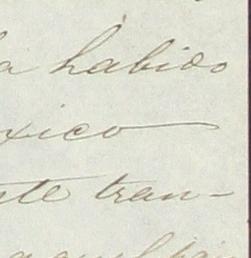 a habido
xico
te tran-